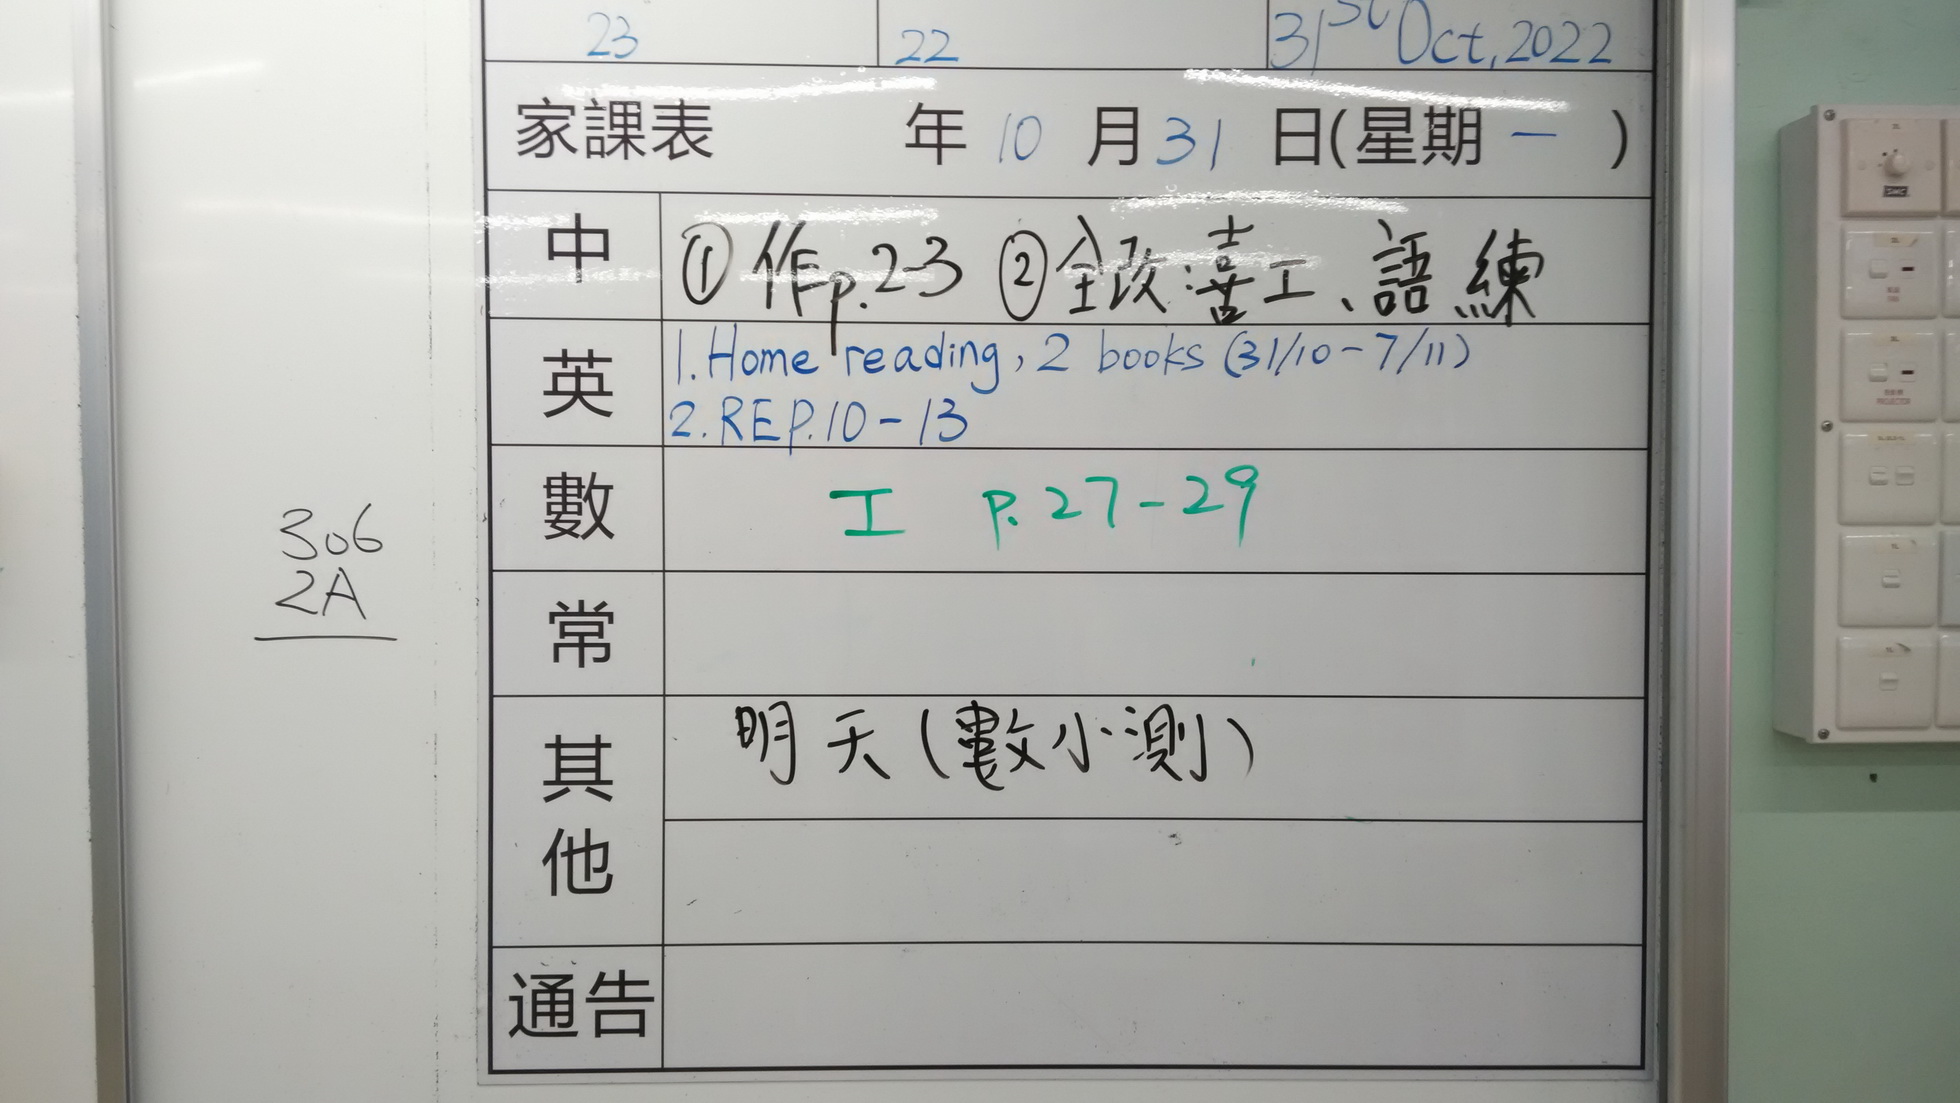 23 22 31st Oct, 2022
家課表 年 10 月 31 日(星期 一 )
中 ① 作 p.2-3 ② 全改:喜工、語練
英 1. Home reading, 2 books (31/10-7/11)
2. RE P.10-13
數 工 P.27-29
常
其他 明天(數小測)
通告
306
2A
PROJECTOR